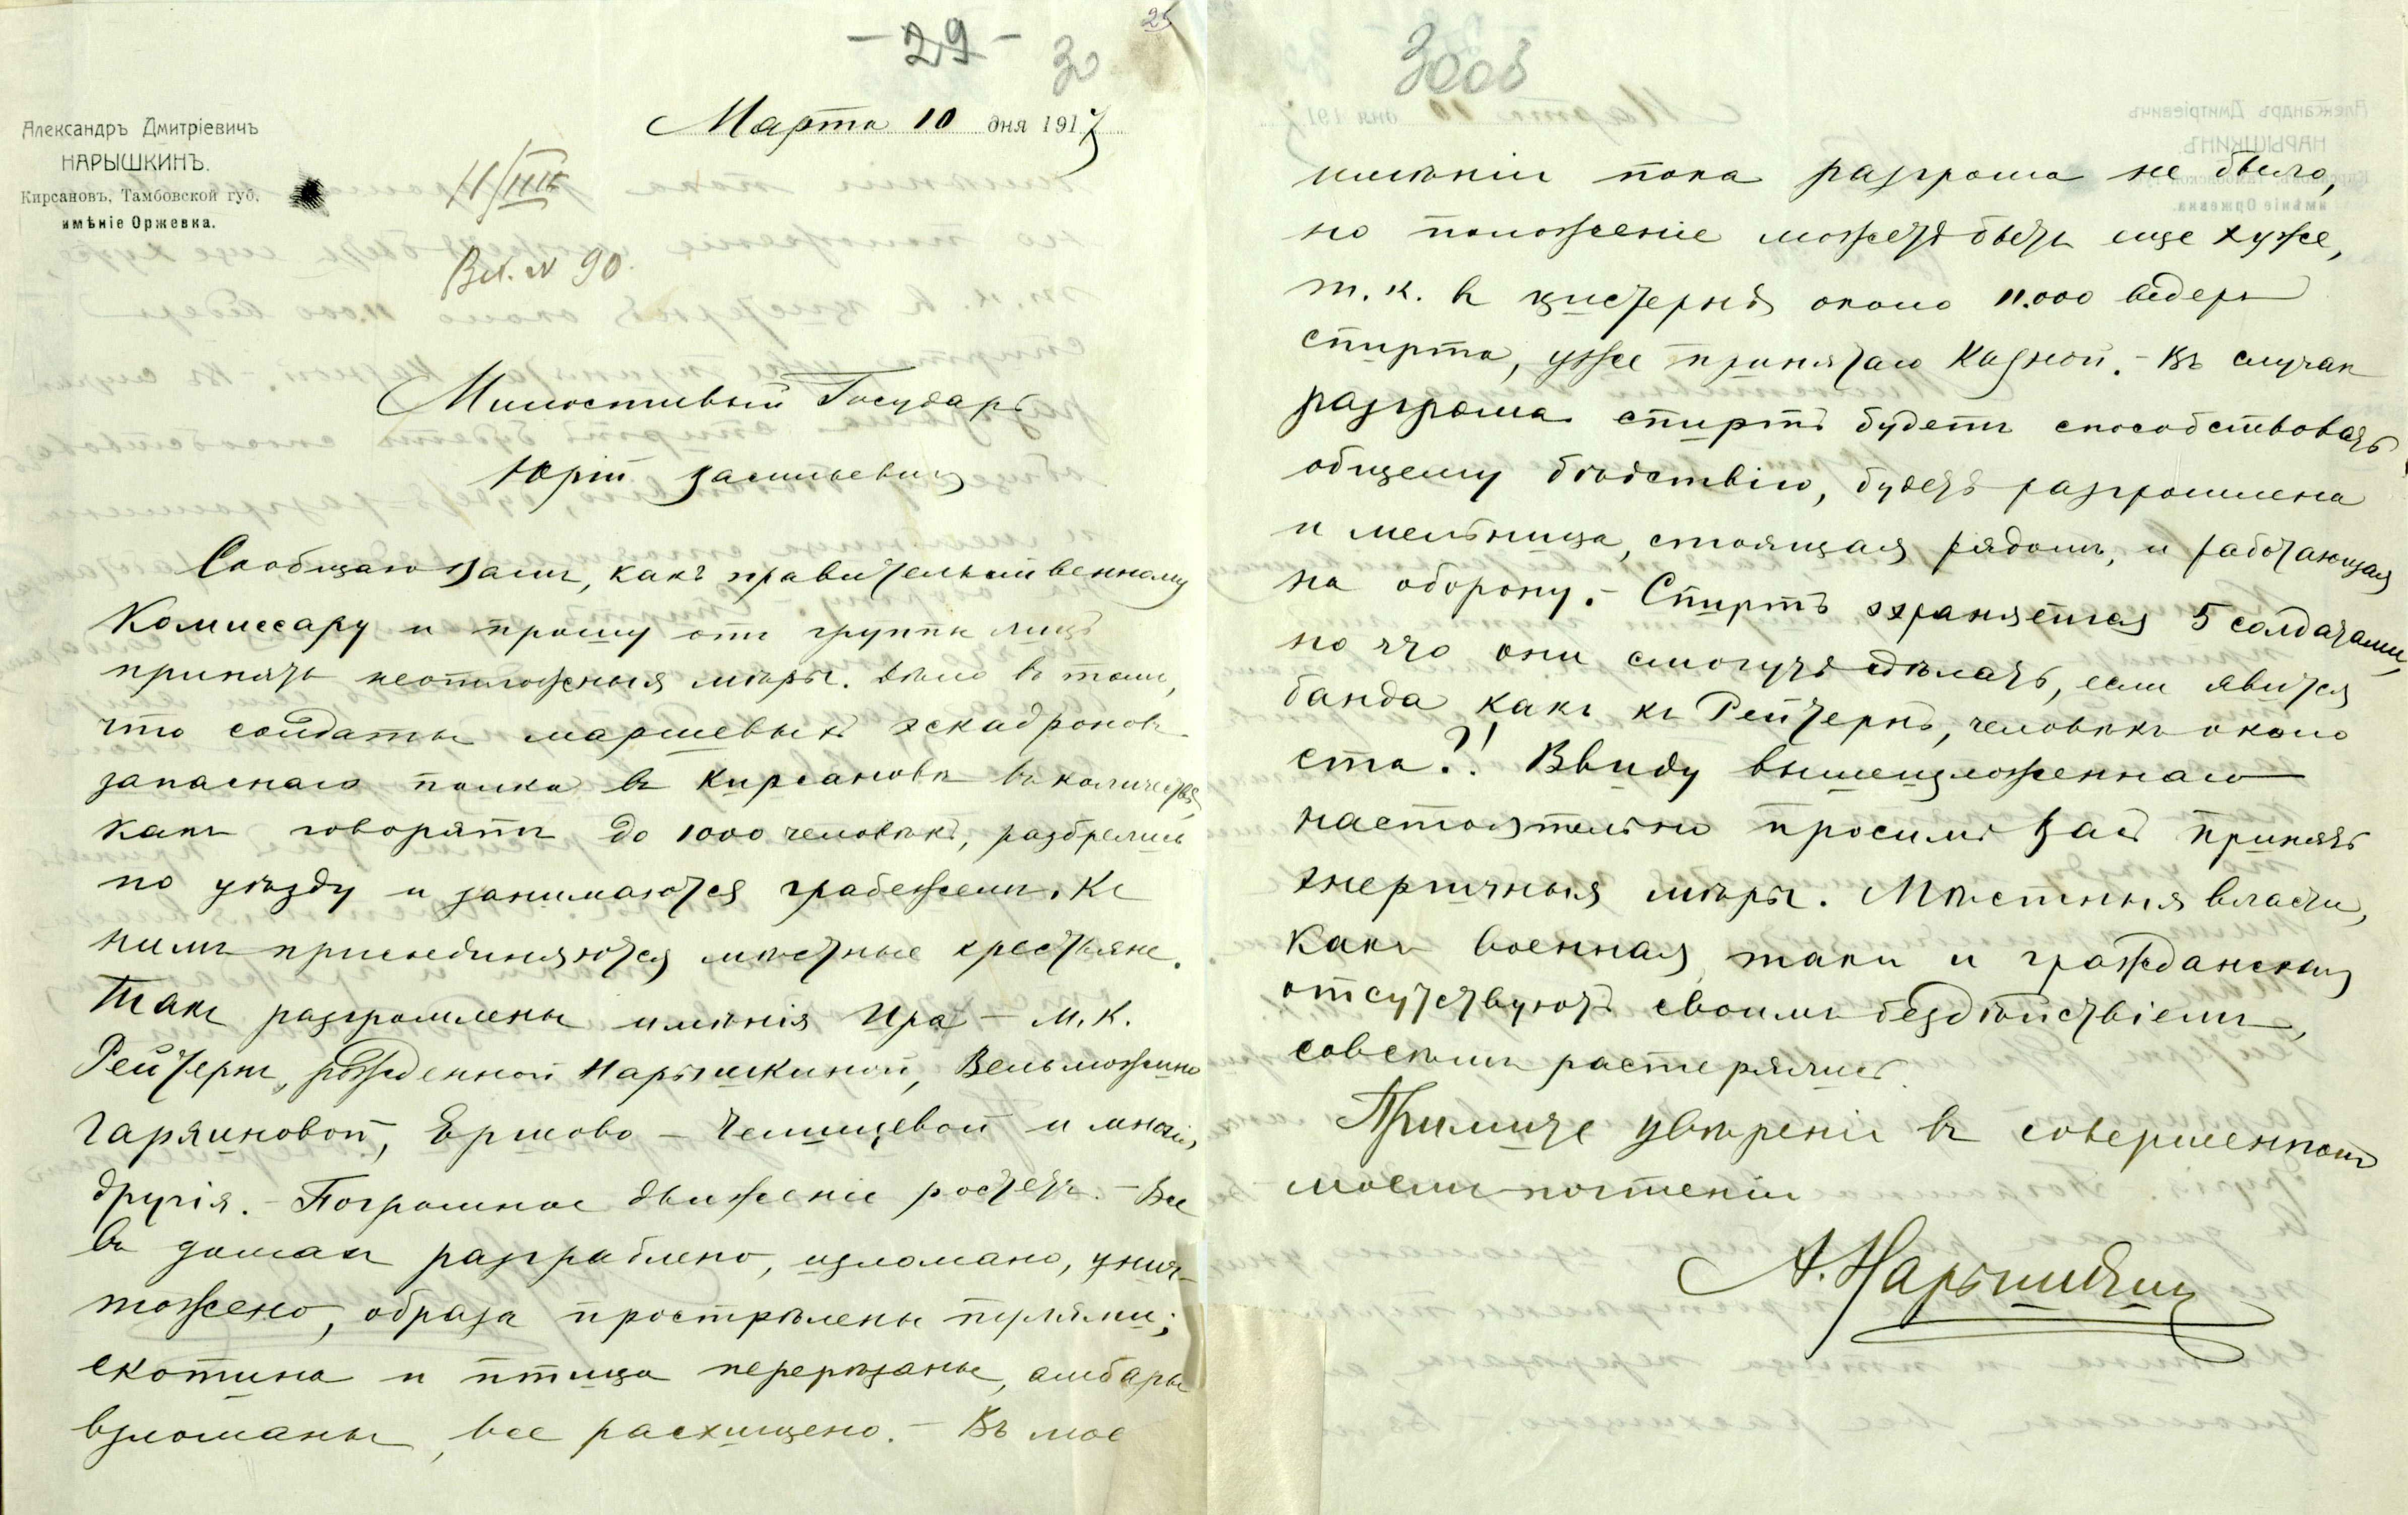 - 29 -
30
25
Александръ Дмитріевичъ
НАРЫШКИНЪ.
Кирсановъ, Тамбовской губ,
имѣніе Оржевка.
Марта 10 дня 1917
11/III
Вх. № 90.
Милостивый Государь
Юрій Васильевичъ
Сообщаю Вамъ, какъ правительственному
Комиссару и прошу отъ группы лицъ
принять неотложныя мѣры. Дѣло въ томъ,
что солдаты маршевыхъ эскадроновъ
запаснаго полка въ Кирсановѣ въ количествѣ,
какъ говорятъ до 1000 человѣкъ, разбрелись
по уѣзду и занимаются грабежемъ. Къ
нимъ присоединяются мѣстные крестьяне.
Такъ разгромлены имѣнія Ира – М. К.
Рейтернъ, рожденной Нарышкиной, Вельможино
Гаряиновой, Ершово – Челищевой и многія
другія. – Погромное движеніе ростетъ. – Все
въ домахъ разграблено, изломано, унич-
тожено, образа прострѣлены пулями;
скотина и птица перерѣзаны, амбары
взломаны, все расхищено. – Въ мое
30об
имѣніи пока разгрома не было,
но положеніе можетъ быть еще хуже,
т. к. въ цистернѣ около 11.000 ведеръ
спирта, уже принятаго Казной. – Въ случаѣ
разгрома спиртъ будетъ способствовать
общему бѣдствію, будетъ разгромлена
и мельница, стоящая рядомъ, и работающая
на оборону. – Спиртъ охраняется 5 солдатами,
но что они смогутъ сдѣлать, если явится
банда какъ къ Рейтернъ, человѣкъ около
ста?! Ввиду вышеизложеннаго
настоятельно просимъ Васъ принять
энергичныя мѣры. Мѣстныя власти,
какъ военная такъ и гражданская
отсутствуютъ своимъ бездѣйствіемъ,
совсѣмъ растерялись.
Примите увѣреніе въ совершенномъ
моемъ почтеніи
А. Нарышкинъ